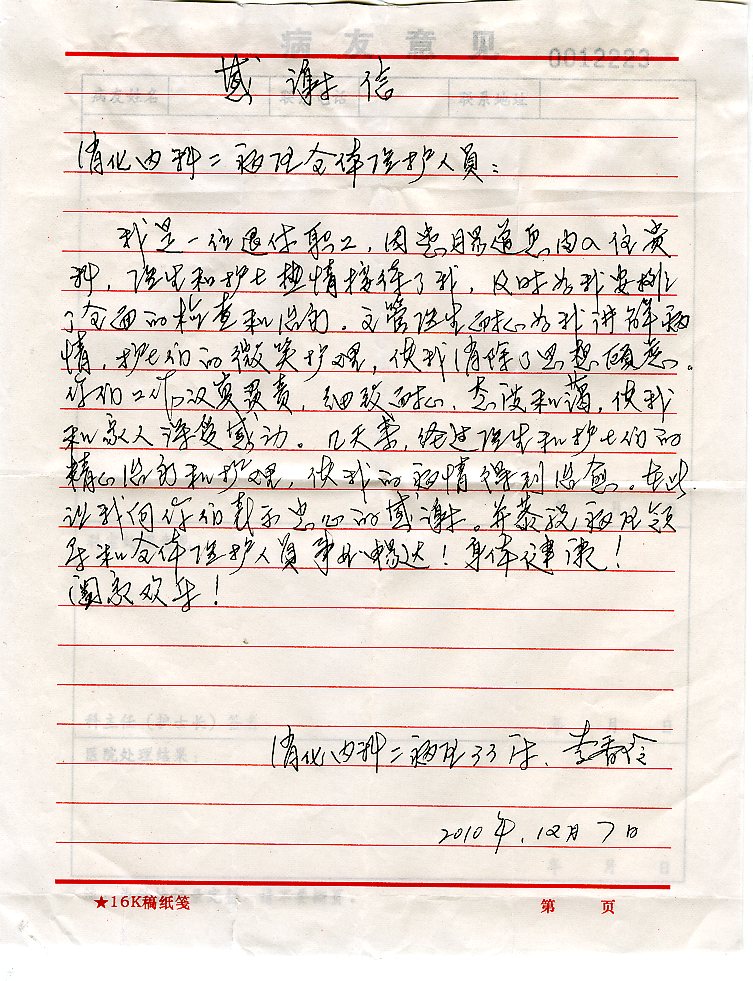 病友意见
0012223
病友姓名 联系电话 联系地址
感谢信
消化内科二病区全体医护人員：
我是一位退休职工，因患胃肠道息肉入住贵
科，医生和护士热情接待了我，及时为我安排
了全面的检查和治疗。主管医生耐心为我讲解病
情，护士们的微笑护理，使我消除了思想顾虑。
你们工作认真负责，细致耐心，态度和蔼，使我
和家人深受感动。几天来，经过医生和护士们的
精心治疗和护理，使我的病情得到治愈。在此
让我向你们表示衷心的感谢。并恭祝病区领
导和全体医护人员事业畅达！身体健康！
阖家欢乐！
科主任（护士长）签名 年 月 日
医院处理结果：
消化内科二病区33床、李香
2010年.12月7日
年 月 日
★16K稿纸笺 第 页